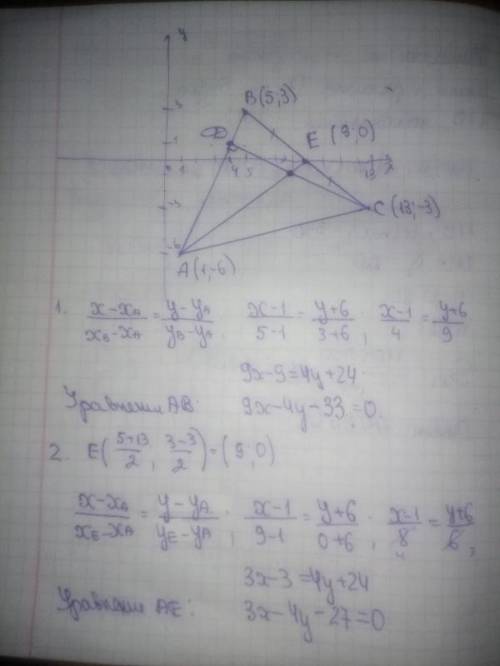 y
B(5;3)
3
D
E (9;0)
1
0 1 4 5 13 x
-3
C (13;-3)
-6
A(1;-6)
1. (x-x_A)/(x_B-x_A) = (y-y_A)/(y_B-y_A); (x-1)/(5-1) = (y+6)/(3+6); (x-1)/4 = (y+6)/9
9x-9=4y+24
Уравнение AB: 9x-4y-33=0
2. E((5+13)/2; (3-3)/2)=(9;0)
(x-x_A)/(x_E-x_A) = (y-y_A)/(y_E-y_A); (x-1)/(9-1) = (y+6)/(0+6); (x-1)/8 = (y+6)/6;
4
3x-3=4y+24
Уравнение AE: 3x-4y-27=0